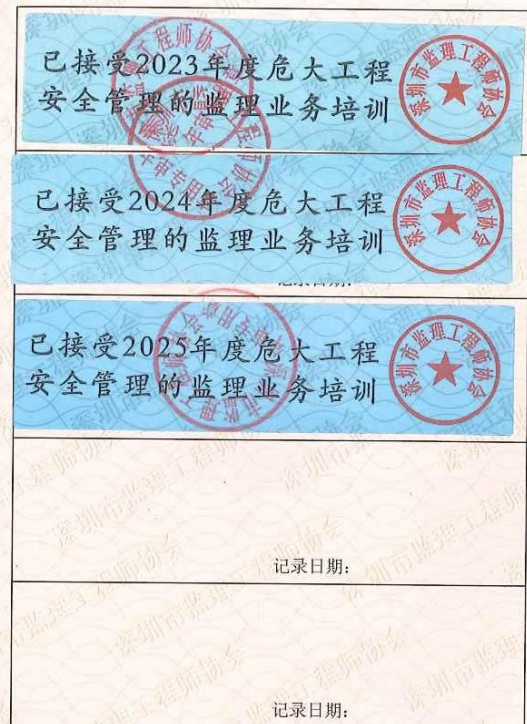 已接受2023年度危大工程
安全管理的监理业务培训
深圳市监理工程师协会
已接受2024年度危大工程
安全管理的监理业务培训
深圳市监理工程师协会
记录日期:
已接受2025年度危大工程
安全管理的监理业务培训
深圳市监理工程师协会
记录日期:
记录日期: